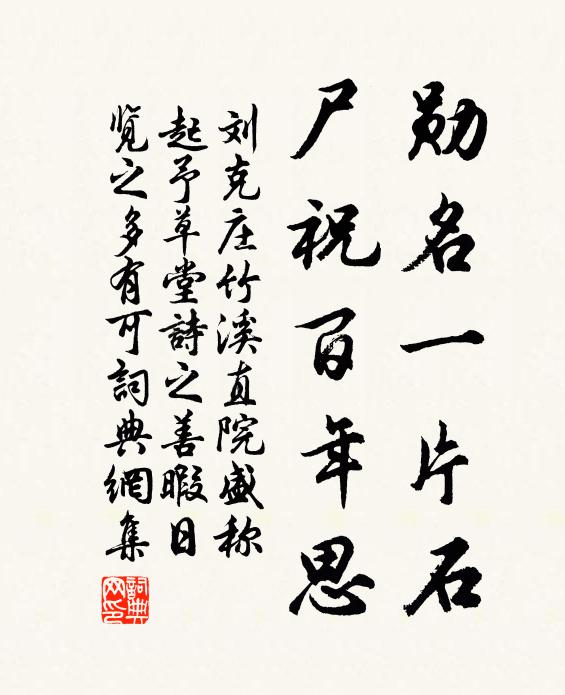 勋名一片石
尸祝百年思
刘克庄竹溪直院盛称
起予草堂詩之善暇日
览之多有可詞典網集
詞典网印